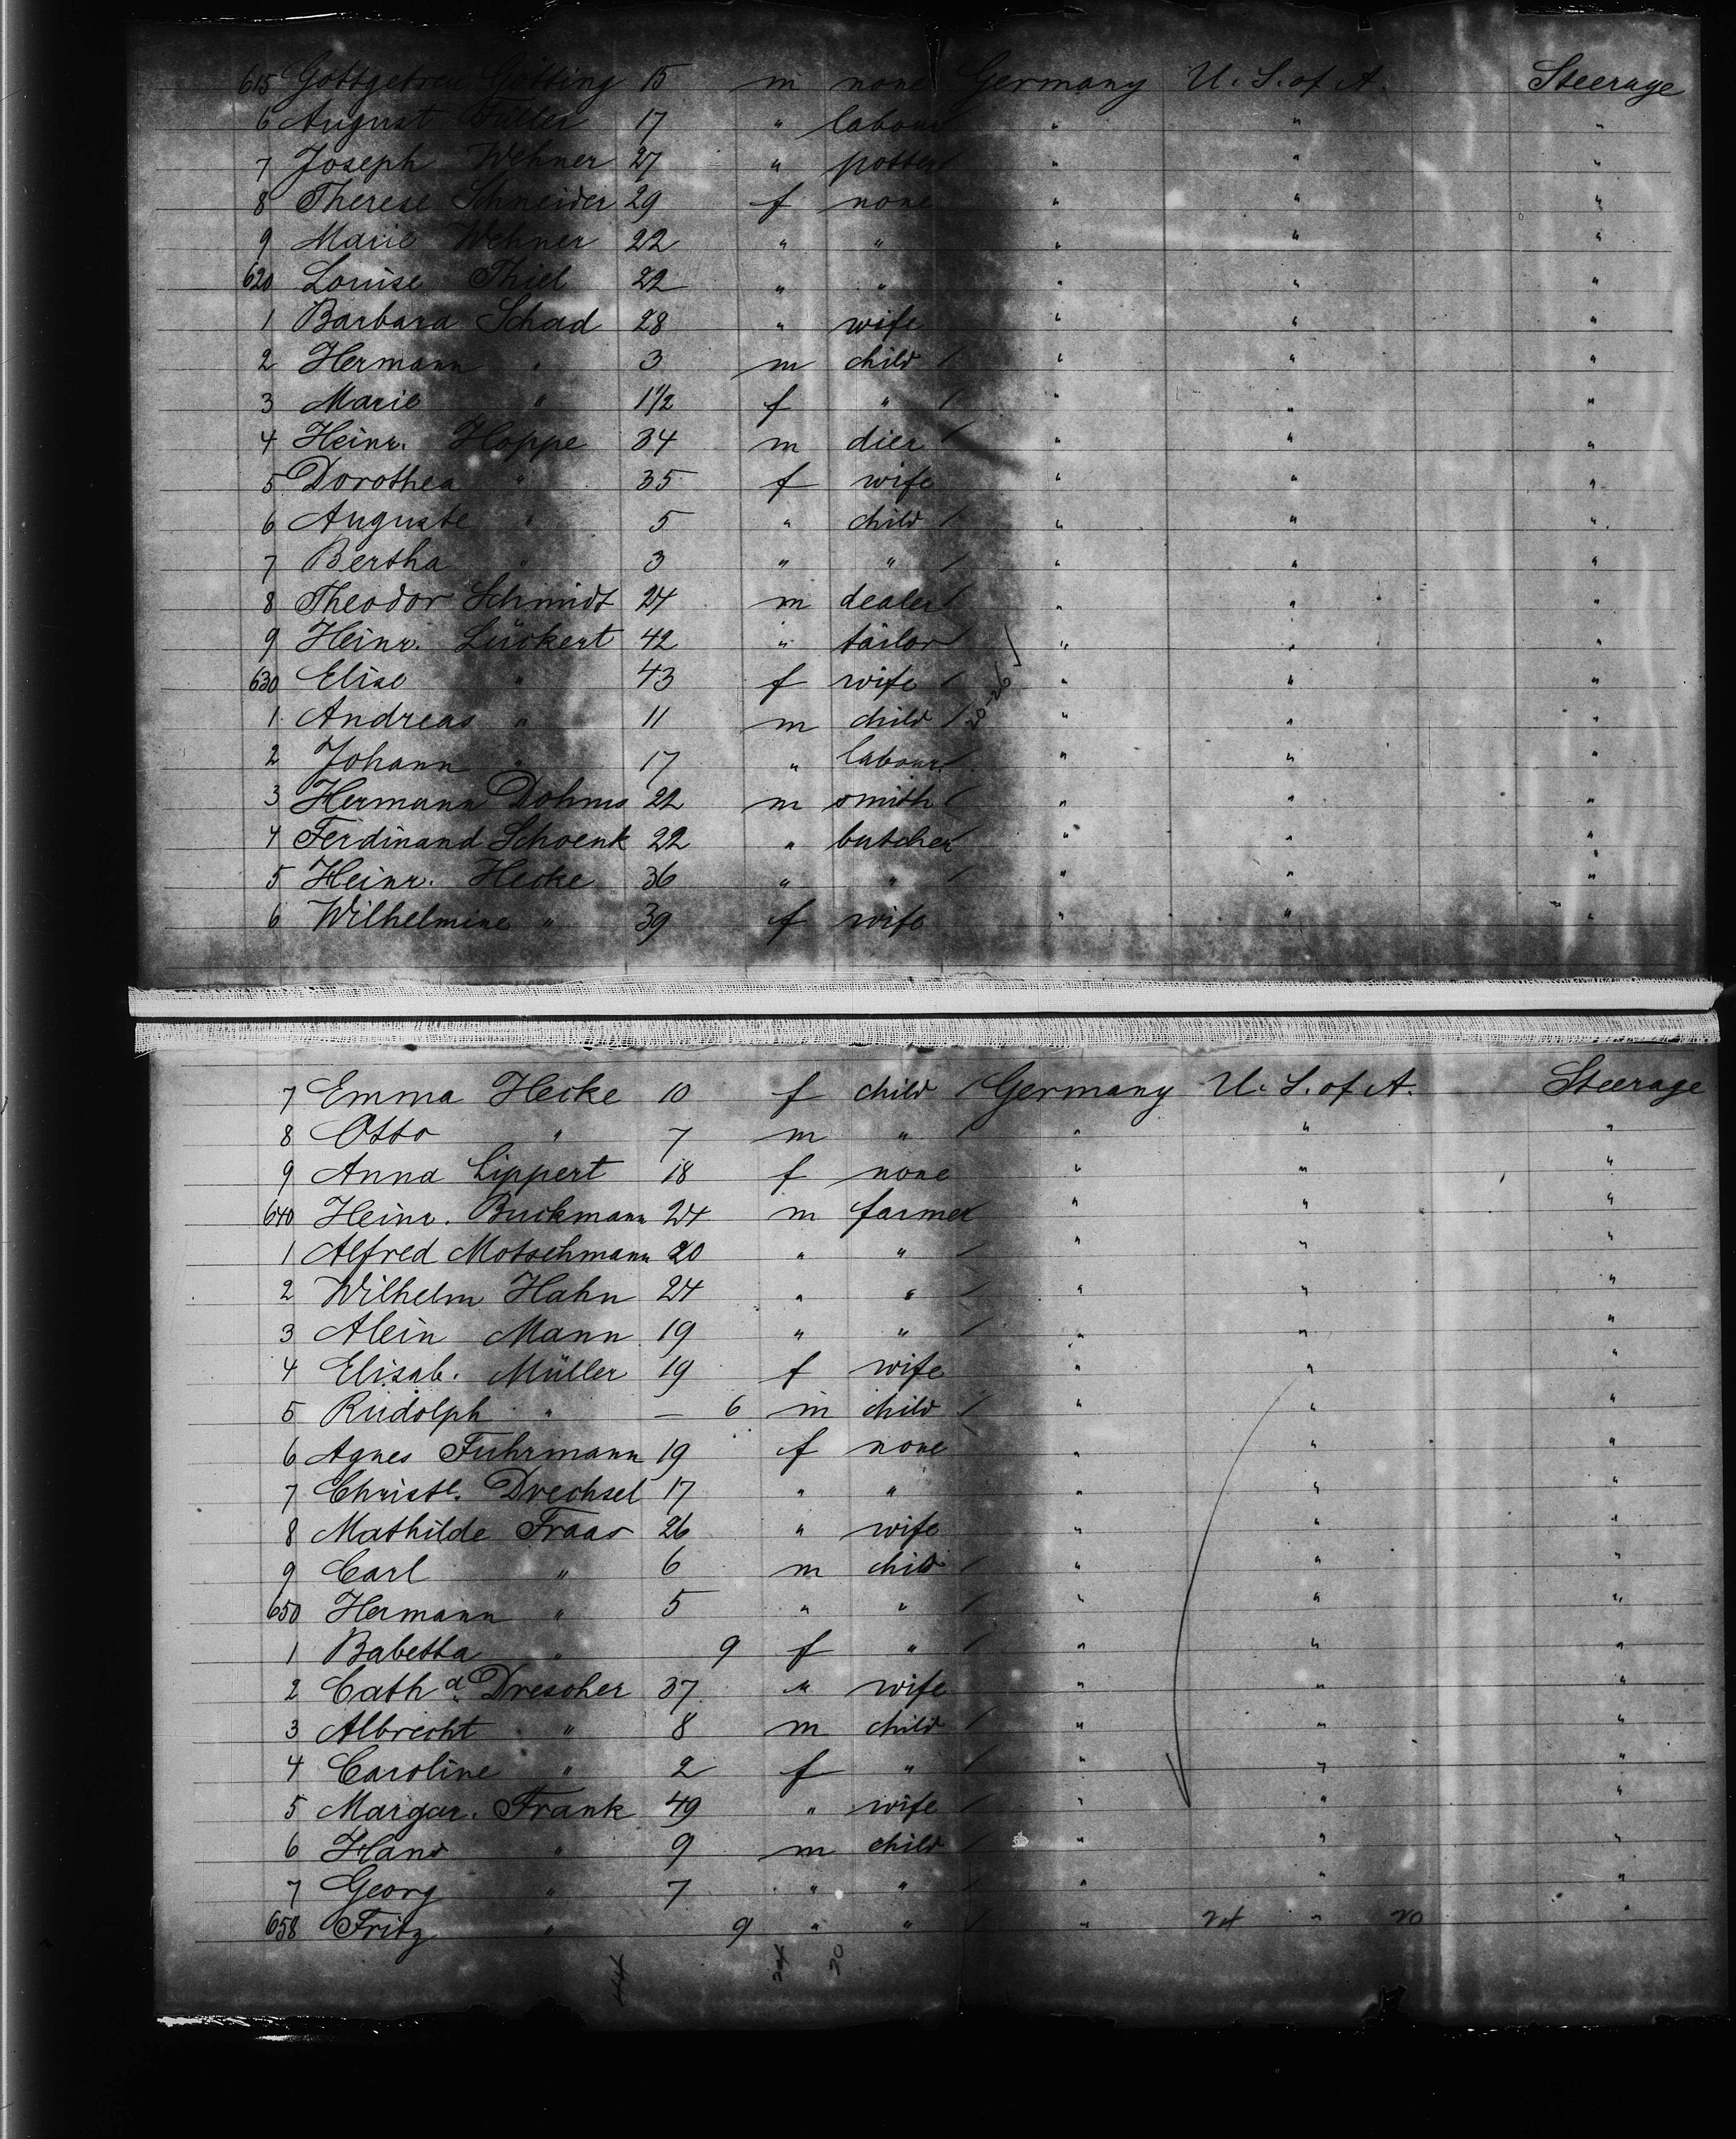 615 Gottgetreu Götting 15 m none Germany U. S. of A. Steerage
6 August Füller 17 " labour " " "
7 Joseph Wehner 27 " potter " " "
8 Therese Schneider 29 f none " " "
9 Marie Wehner 22 " " " " "
620 Louise Thiel 22 " " " " "
1 Barbara Schad 28 " wife " " "
2 Hermann " 3 m child " " "
3 Marie " 1 1/2 f " " " "
4 Heinr. Hoppe 34 m dier " " "
5 Dorothea " 35 f wife " " "
6 Auguste " 5 " child " " "
7 Bertha " 3 " " " " "
8 Theodor Schmidt 24 m dealer " " "
9 Heinr. Lückert 42 " tailor " " "
630 Elise " 43 f wife " " "
1 Andreas " 11 m child " " "
2 Johann " 17 " labour. " " "
3 Hermann Dohms 22 m smith " " "
4 Ferdinand Schoenk 22 " butcher " " "
5 Heinr. Hecke 36 " " " " "
6 Wilhelmine " 39 f wife " " "
7 Emma Hecke 10 f child Germany U. S. of A. Steerage
8 Otto " 7 m " " " "
9 Anna Lippert 18 f none " " "
640 Heinr. Buckmann 24 m farmer " " "
1 Alfred Motschmann 20 " " " " "
2 Wilhelm Hahn 24 " " " " "
3 Alein Mann 19 " " " " "
4 Elisab. Müller 19 f wife " " "
5 Rudolph " — 6 m child " " "
6 Agnes Fuhrmann 19 f none " " "
7 Christe. Drechsel 17 " " " " "
8 Mathilde Fraas 26 " wife " " "
9 Carl " 6 m child " " "
650 Hermann " 5 " " " " "
1 Babetta " 9 f " " " "
2 Catha. Drescher 37 " wife " " "
3 Albrecht " 8 m child " " "
4 Caroline " 2 f " " " "
5 Margar. Frank 49 " wife " " "
6 Hans " 9 m child " " "
7 Georg " 7 " " " " "
658 Fritz " 9 " " " 24 " 20 "
44 24 20